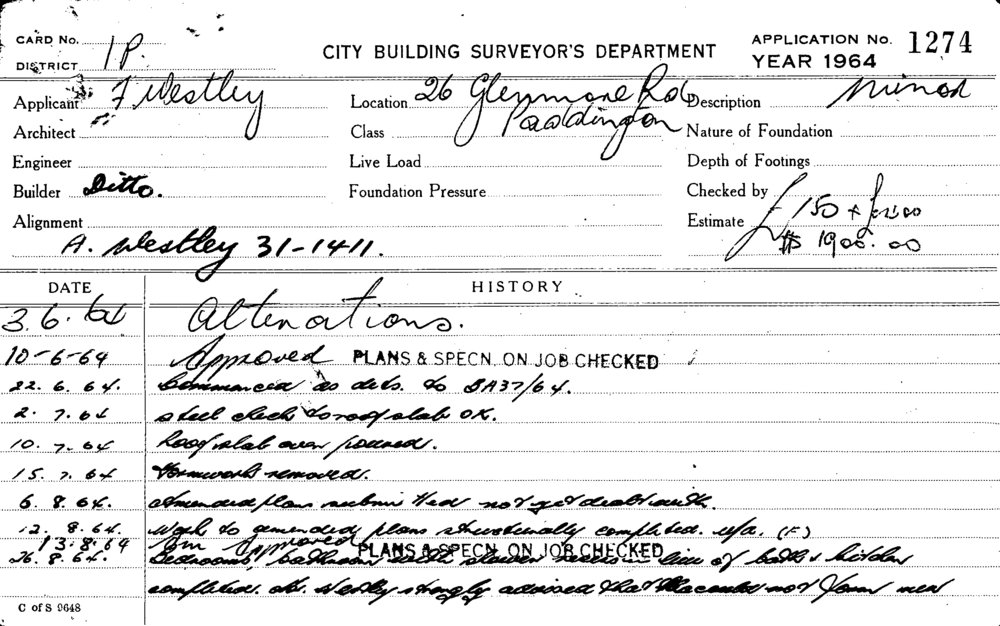 CARD No. 1P.
DISTRICT
CITY BUILDING SURVEYOR'S DEPARTMENT
APPLICATION No. 1274
YEAR 1964
Applicant F Westley
Location 26 Glenmore Rd Paddington
Description Minor
Architect
Class
Nature of Foundation
Engineer
Live Load
Depth of Footings
Builder Ditto.
Foundation Pressure
Checked by
Alignment
Estimate £150 +
$ 1900.00
A. Westley 31-1411.
DATE HISTORY
3.6.64 Alterations.
10-6-64 Approved PLANS & SPECN. ON JOB CHECKED
22.6.64. Commenced as dets. to BA37/64.
2.7.64 steel check to roof slab OK.
10.7.64 Roof slab over poured.
15.7.64 Formwork removed.
6.8.64. Amended plans submitted not yet dealt with.
12.8.64. Work to amended plans structurally completed. (F)
13.8.64 Approved PLANS & SPECN. ON JOB CHECKED
26.8.64. Bedrooms, bathroom with shower recess in lieu of bath & kitchen
completed. Mr. Westley strongly advised that he could not
C of S 9648